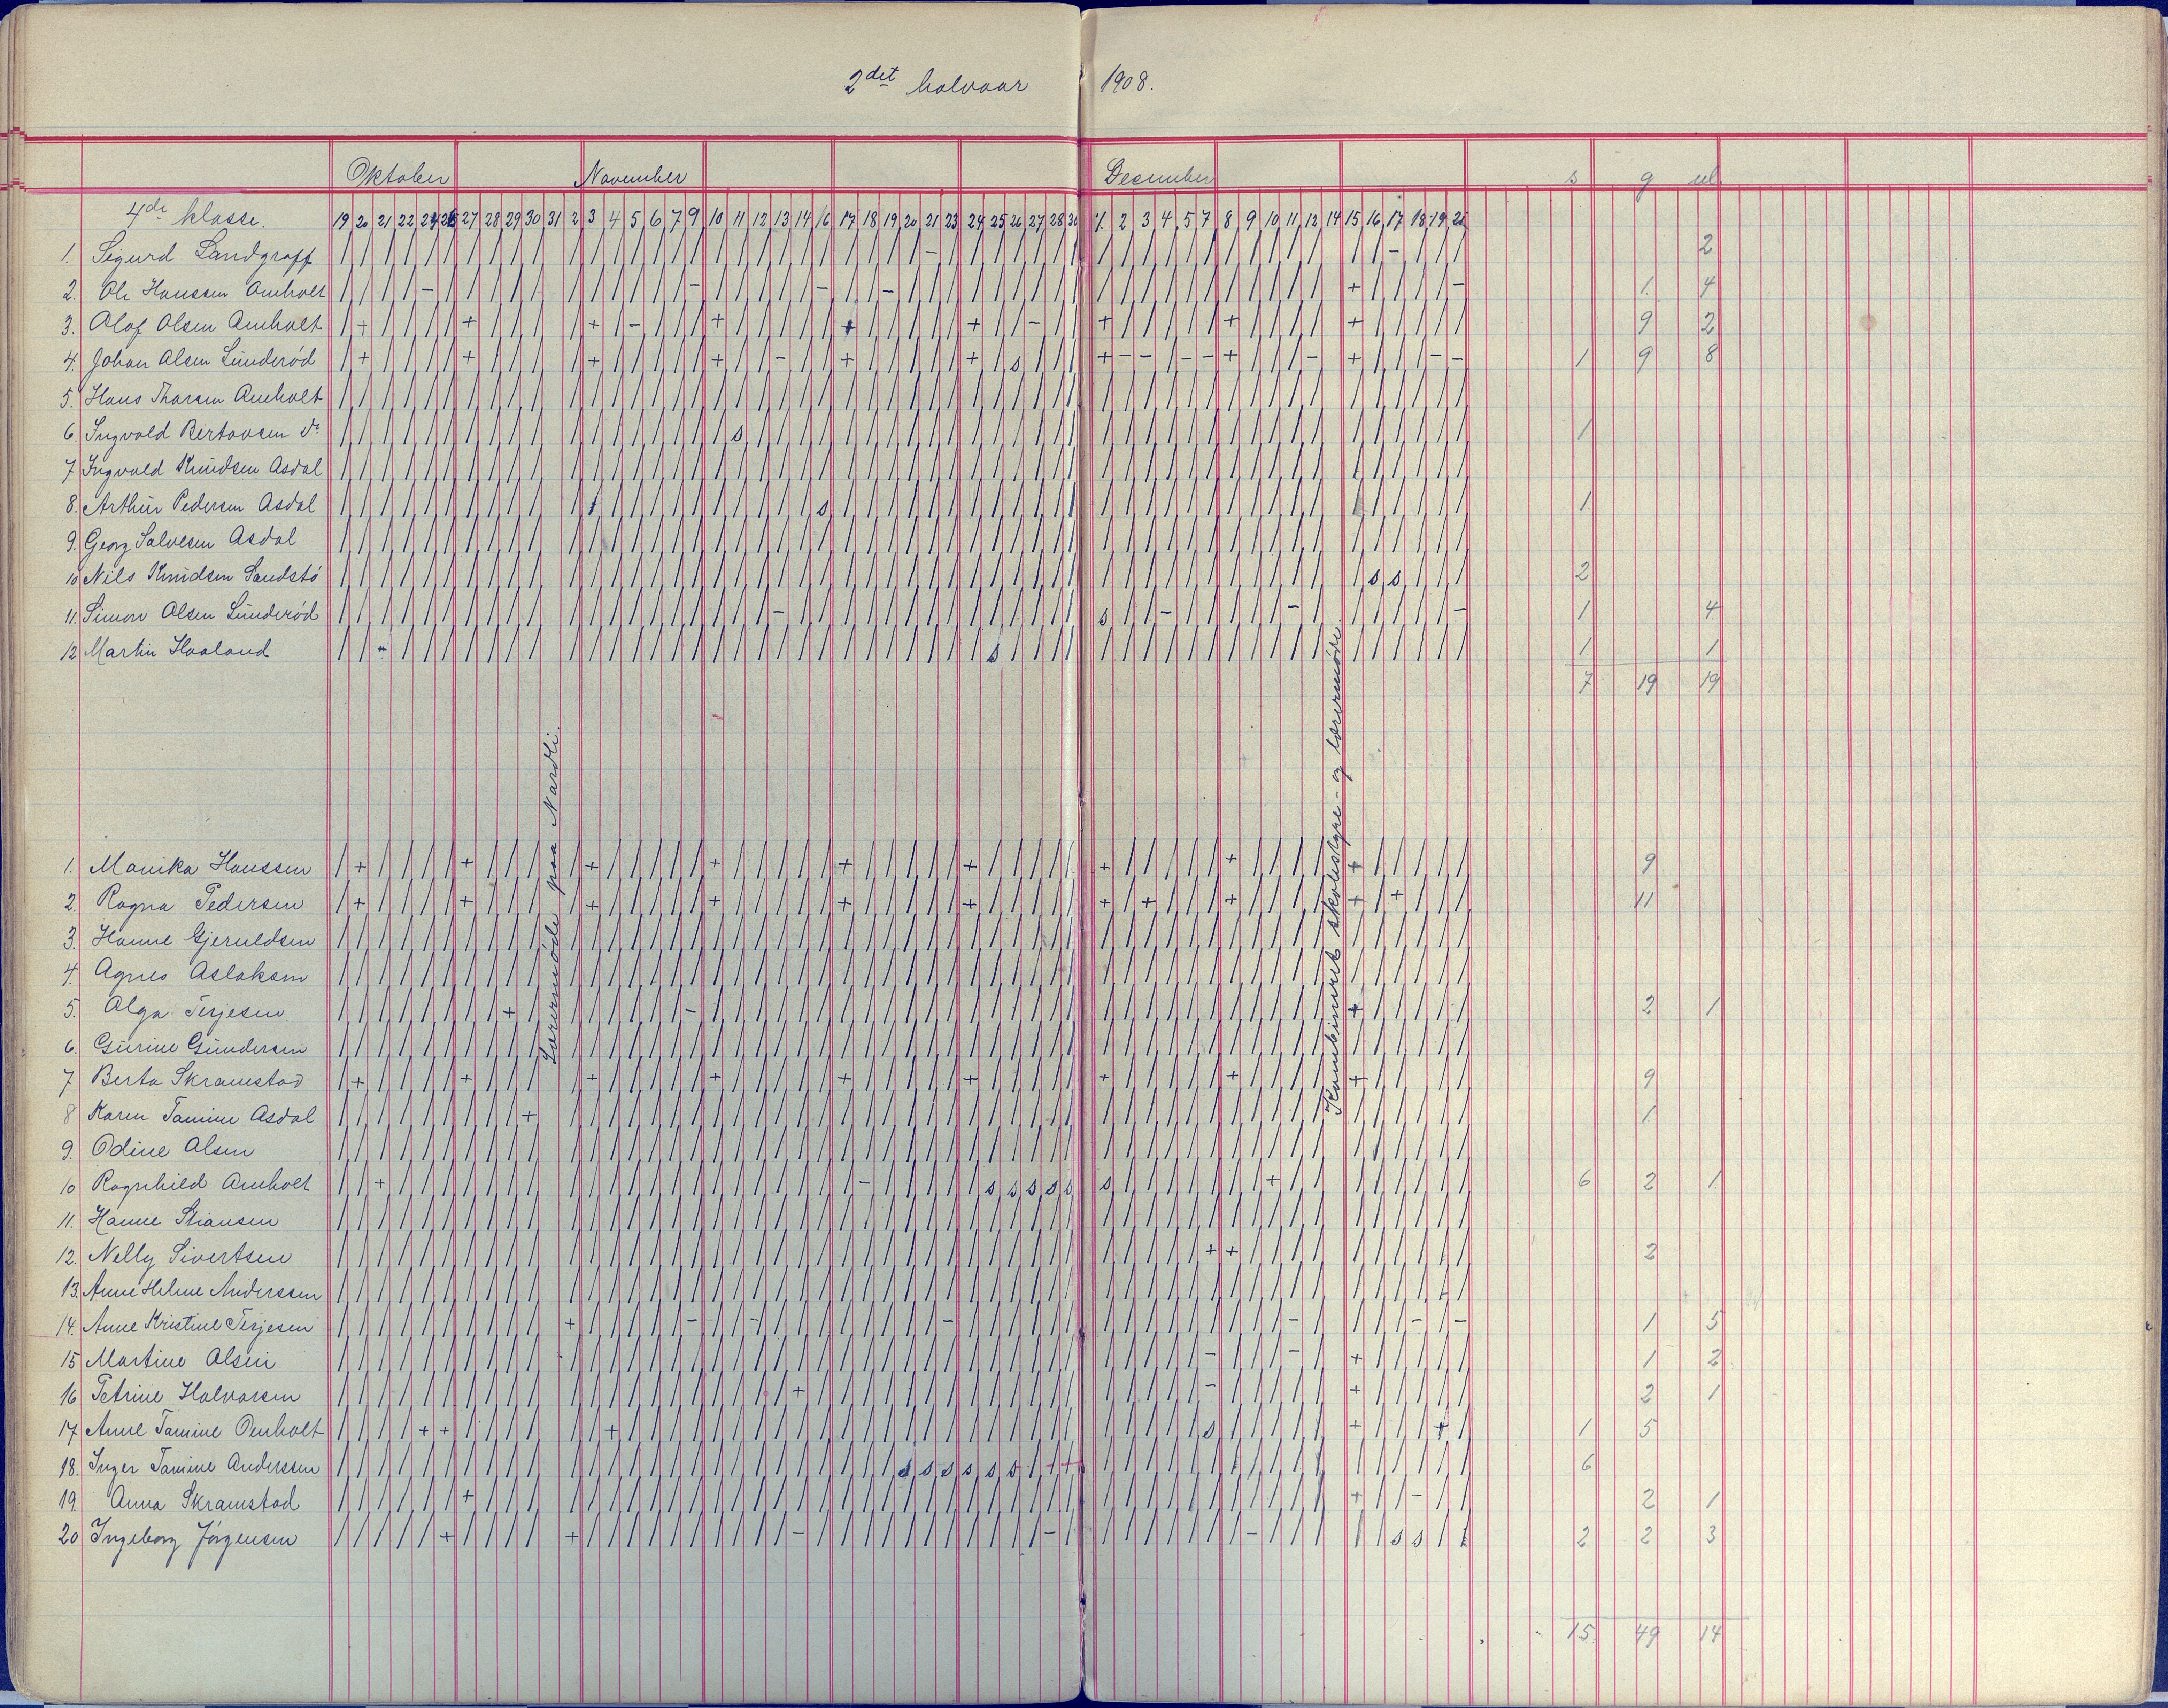 2det halvaar 1908.
Oktober November December s g ul
4de klasse. 19 20 21 22 24 26 27 28 29 30 31 2 3 4 5 6 7 9 10 11 12 13 14 16 17 18 19 20 21 23 24 25 26 27 28 30 1. 2 3 4 5 7 8 9 10 11 12 14 15 16 17 18 19 21
1. Sigurd Landgraff 2
2. Ole Hanssen Omholt 1. 4
3. Olaf Olsen Omholt 9 2
4. Johan Olsen Lunderöd 1 9 8
5. Hans Thorsen Omholt
6. Ingvald Bertovsen do. 1
7 Ingvald Knudsen Asdal
8. Arthur Pedersen Asdal 1
9. Georg Salvesen Asdal
10 Nils Knudsen Sandstö 2
11. Simon Olsen Lunderöd 1 4
12 Martin Haaland 1 1
7 19 19
Lærermöde paa Nardli.
Kombineret skolestyre- og lærermöde.
1. Monika Hanssen 9
2. Ragna Pedersen 11
3. Hanne Gjeruldsen
4. Agnes Aslaksen
5. Olga Terjesen 2 1
6. Gurine Gundersen
7 Berta Skramstad 9
8 Karen Tomine Asdal 1.
9. Odine Olsen
10 Ragnhild Omholt 6 2 1
11. Hanne Stiansen
12. Nelly Sivertsen 2
13. Anne Helene Anderssen
14. Anne Kristine Terjesen 1 5
15 Martine Olsen 1 2
16 Petrine Halvorsen 2 1
17 Anne Tomine Omholt 1 5
18. Inger Tomine Anderssen 6
19. Anna Skramstad 2 1
20 Ingeborg Jörgensen 2 2 3
15 49 14